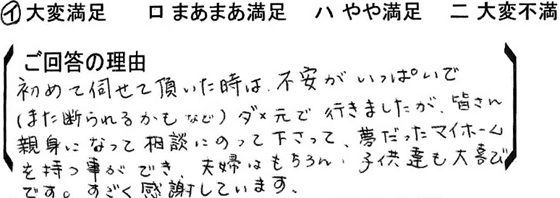 イ 大変満足 ロ まあまあ満足 ハ やや満足 ニ 大変不満
ご回答の理由
初めて伺せて頂いた時は、不安がいっぱいで
(また断られるかもなど) ダメ元で行きましたが、皆さん
親身になって相談にのって下さって、夢だったマイホーム
を持つ事ができ、夫婦はもちろん、子供達も大喜び
です。すごく感謝しています、